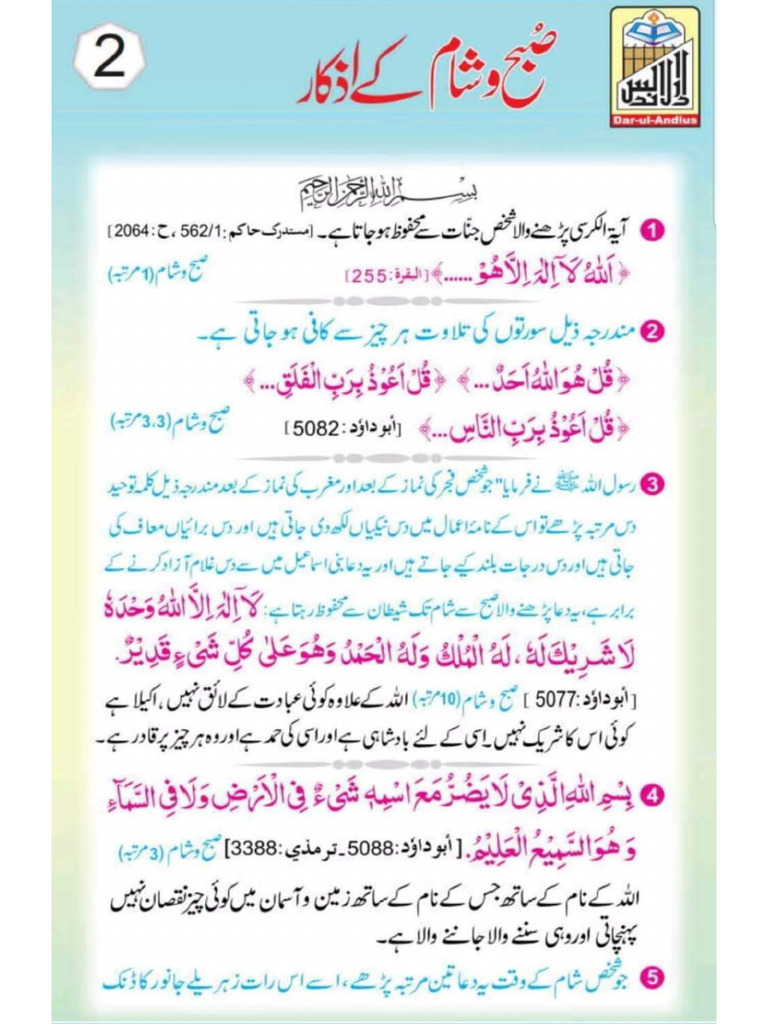 2
صُبح و شام کے اذکار
دارالاندلس
Dar-ul-Andlus
بسم اللہ الرحمن الرحیم
1 آیۃ الکرسی پڑھنے والا شخص جنّات سے محفوظ ہو جاتا ہے۔ [مستدرک حاکم:562/1 ،ح:2064]
﴿اَللّٰهُ لَاۤ اِلٰهَ اِلَّا هُوَ ......﴾ [البقرة:255] صبح و شام (1 مرتبہ)
2 مندرجہ ذیل سورتوں کی تلاوت ہر چیز سے کافی ہو جاتی ہے۔
﴿قُلْ هُوَ اللّٰهُ اَحَدٌ ...﴾ ﴿قُلْ اَعُوْذُ بِرَبِّ الْفَلَقِ ...﴾
﴿قُلْ اَعُوْذُ بِرَبِّ النَّاسِ ...﴾ [أبوداؤد:5082] صبح و شام (3،3 مرتبہ)
3 رسول اللہ ﷺ نے فرمایا "جو شخص فجر کی نماز کے بعد اور مغرب کی نماز کے بعد مندرجہ ذیل کلمہ توحید
دس مرتبہ پڑھے تو اس کے نامۂ اعمال میں دس نیکیاں لکھ دی جاتی ہیں اور دس برائیاں معاف کی
جاتی ہیں اور دس درجات بلند کیے جاتے ہیں اور یہ دعا بنی اسماعیل میں سے دس غلام آزاد کرنے کے
برابر ہے، یہ دعا پڑھنے والا صبح سے شام تک شیطان سے محفوظ رہتا ہے: لَاۤ اِلٰهَ اِلَّا اللّٰهُ وَحْدَهٗ
لَا شَرِيْكَ لَهٗ ، لَهُ الْمُلْكُ وَلَهُ الْحَمْدُ وَهُوَ عَلٰى كُلِّ شَيْءٍ قَدِيْرٌ.
[أبوداؤد:5077] صبح و شام (10 مرتبہ) اللہ کے علاوہ کوئی عبادت کے لائق نہیں، اکیلا ہے
کوئی اس کا شریک نہیں۔ اسی کے لئے بادشاہی ہے اور اسی کی حمد ہے اور وہ ہر چیز پر قادر ہے۔
4 بِسْمِ اللّٰهِ الَّذِيْ لَا يَضُرُّ مَعَ اسْمِهٖ شَيْءٌ فِي الْاَرْضِ وَلَا فِي السَّمَآءِ
وَهُوَ السَّمِيْعُ الْعَلِيْمُ. [أبوداؤد:5088۔ترمذي:3388] صبح و شام (3 مرتبہ)
اللہ کے نام کے ساتھ جس کے نام کے ساتھ زمین و آسمان میں کوئی چیز نقصان نہیں
پہنچاتی اور وہی سننے والا جاننے والا ہے۔
5 جو شخص شام کے وقت یہ دعا تین مرتبہ پڑھے، اسے اس رات زہریلے جانور کا ڈنک